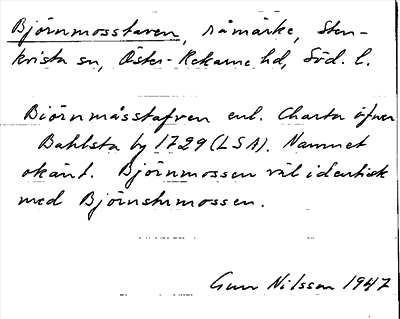 Björnmosstaven, råmärke, Sten-
kvista sn, Öster-Rekarne hd, Söd. l.
Biörnmåsstafven enl. Charta öfver
Bahlsta by 1729 (LSA). Namnet
okänt. Björnmossen väl identisk
med
Gun Nilsson 1947